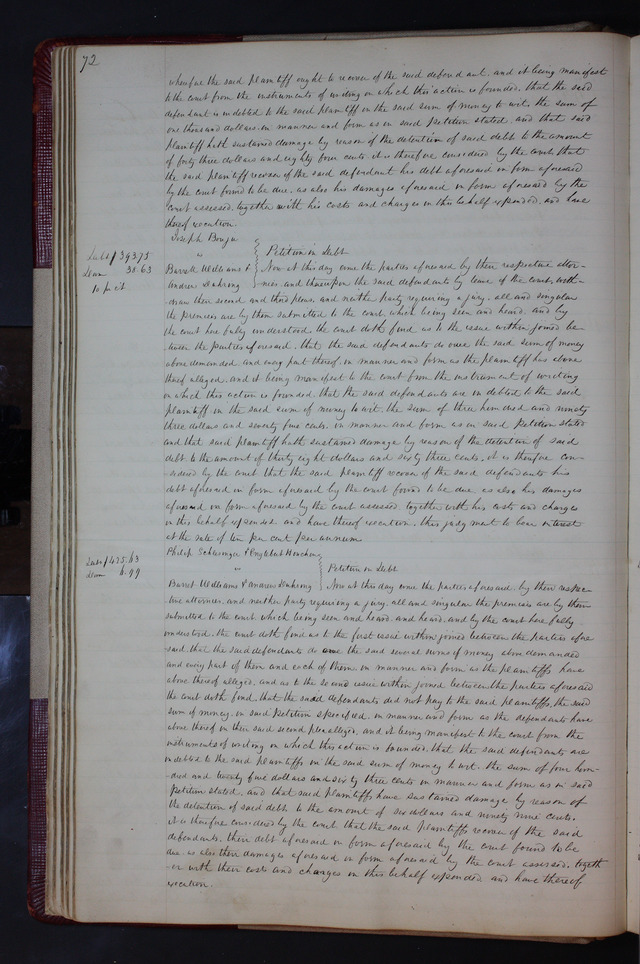 72
wherefore the said plaintiff ought to recover of the said defendant. and it being manifest
to the court from the instruments of writing on which this action is founded, that the said
defendant is indebted to the said plaintiff in the said sum of money to wit, the sum of
one thousand dollars in manner and form as in said petition stated. and that said
plaintiff hath sustained damage by reason of the detention of said debt to the amount
of forty three dollars and eighty four cents. it is therefore considered by the court that
the said plaintiff recover of the said defendant his debt aforesaid in form aforesaid
by the court found to be due. as also his damages aforesaid in form aforesaid by the
court assessed, together with his costs and charges in this behalf expended. and have
thereof execution.
Joseph
"
Petition in Debt
Debt $ 393.75
Dam 38.63
10 pr ct
Burrell Williams &
Andrew
Now at this day come the parties aforesaid by their respective attor-
nies. and thereupon the said defendants by leave of the court, with-
draw their second and third pleas, and neither party requiring a jury. all and singular
the premises are by them submitted to the court, which being seen and heard, and by
the court here fully understood the court doth find as to the issue within joined be-
tween the parties aforesaid, that the said defendants do owe the said sum of money
above demanded. and every part thereof, in manner and form as the plaintiff has above
thereof alleged. and it being manifest to the court from the instrument of writing
on which this action is founded, that the said defendants are indebted to the said
plaintiff in the said sum of money to wit. the sum of three hundred and ninety
three dollars and seventy five cents. in manner and form as in said petition stated
and that said plaintiff hath sustained damage by reason of the detention of said
debt to the amount of thirty eight dollars and sixty three cents, it is therefore con-
sidered by the court that the said plaintiff recover of the said defendants his
debt aforesaid in form aforesaid by the court found to be due as also his damages
aforesaid in form aforesaid by the court assessed together with his costs and charges
in this behalf expended. and have thereof execution. this judgment to bear interest
at the rate of ten per cent per annum
Debt $ 425.63
Dam 6.99
Philip & Englebert
"
Petition in Debt
Burrel Williams & Andrew
Now at this day come the parties aforesaid, by their respec-
tive attornies. and neither party requiring a jury. all and singular the premises are by them
submitted to the court which being seen and heard. and heard, and by the court here fully
understood. the court doth find as to the first issue within joined between the parties afore
said. that the said defendants do owe the said several sums of money above demanded
and every part of them and each of them in manner and form as the plaintiffs have
above thereof alleged. and as to the second issue within joined between the parties aforesaid
the court doth find. that the said defendants did not pay to the said plaintiffs, the said
sum of money. in said petition specified. in manner and form as the defendants have
above thereof in their said second plea alleged. and it being manifest to the court from the
instruments of writing on which this action is founded. that the said defendants are
indebted to the said plaintiffs in the said sum of money to wit. the sum of four hun-
dred and twenty five dollars and sixty three cents in manner and form as in said
petition stated. and that said plaintiffs have sustained damage by reason of
the detention of said debt, to the amount of six dollars and ninety nine cents.
it is therefore considered by the court that the said plaintiffs recover of the said
defendants, their debt aforesaid in form aforesaid by the court found to be
due. as also their damages aforesaid in form aforesaid by the court assessed. togeth
-er with their costs and charges in this behalf expended and have thereof
execution.